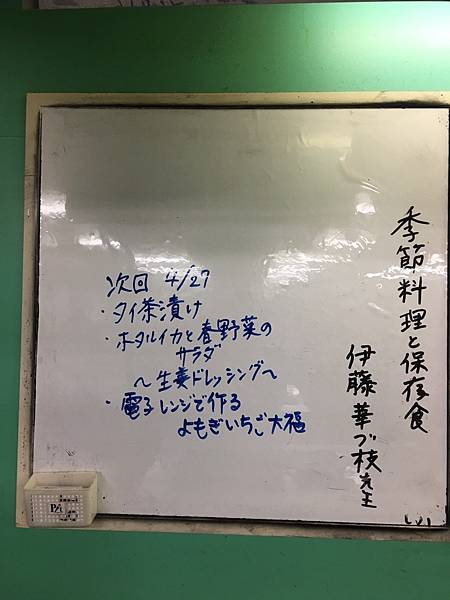 季節料理と保存食
伊藤華づ枝先生
次回 4/27
・タイ茶漬け
・ホタルイカと春野菜の
サラダ
〜生姜ドレッシング〜
・電子レンジで作る
よもぎいちご大福